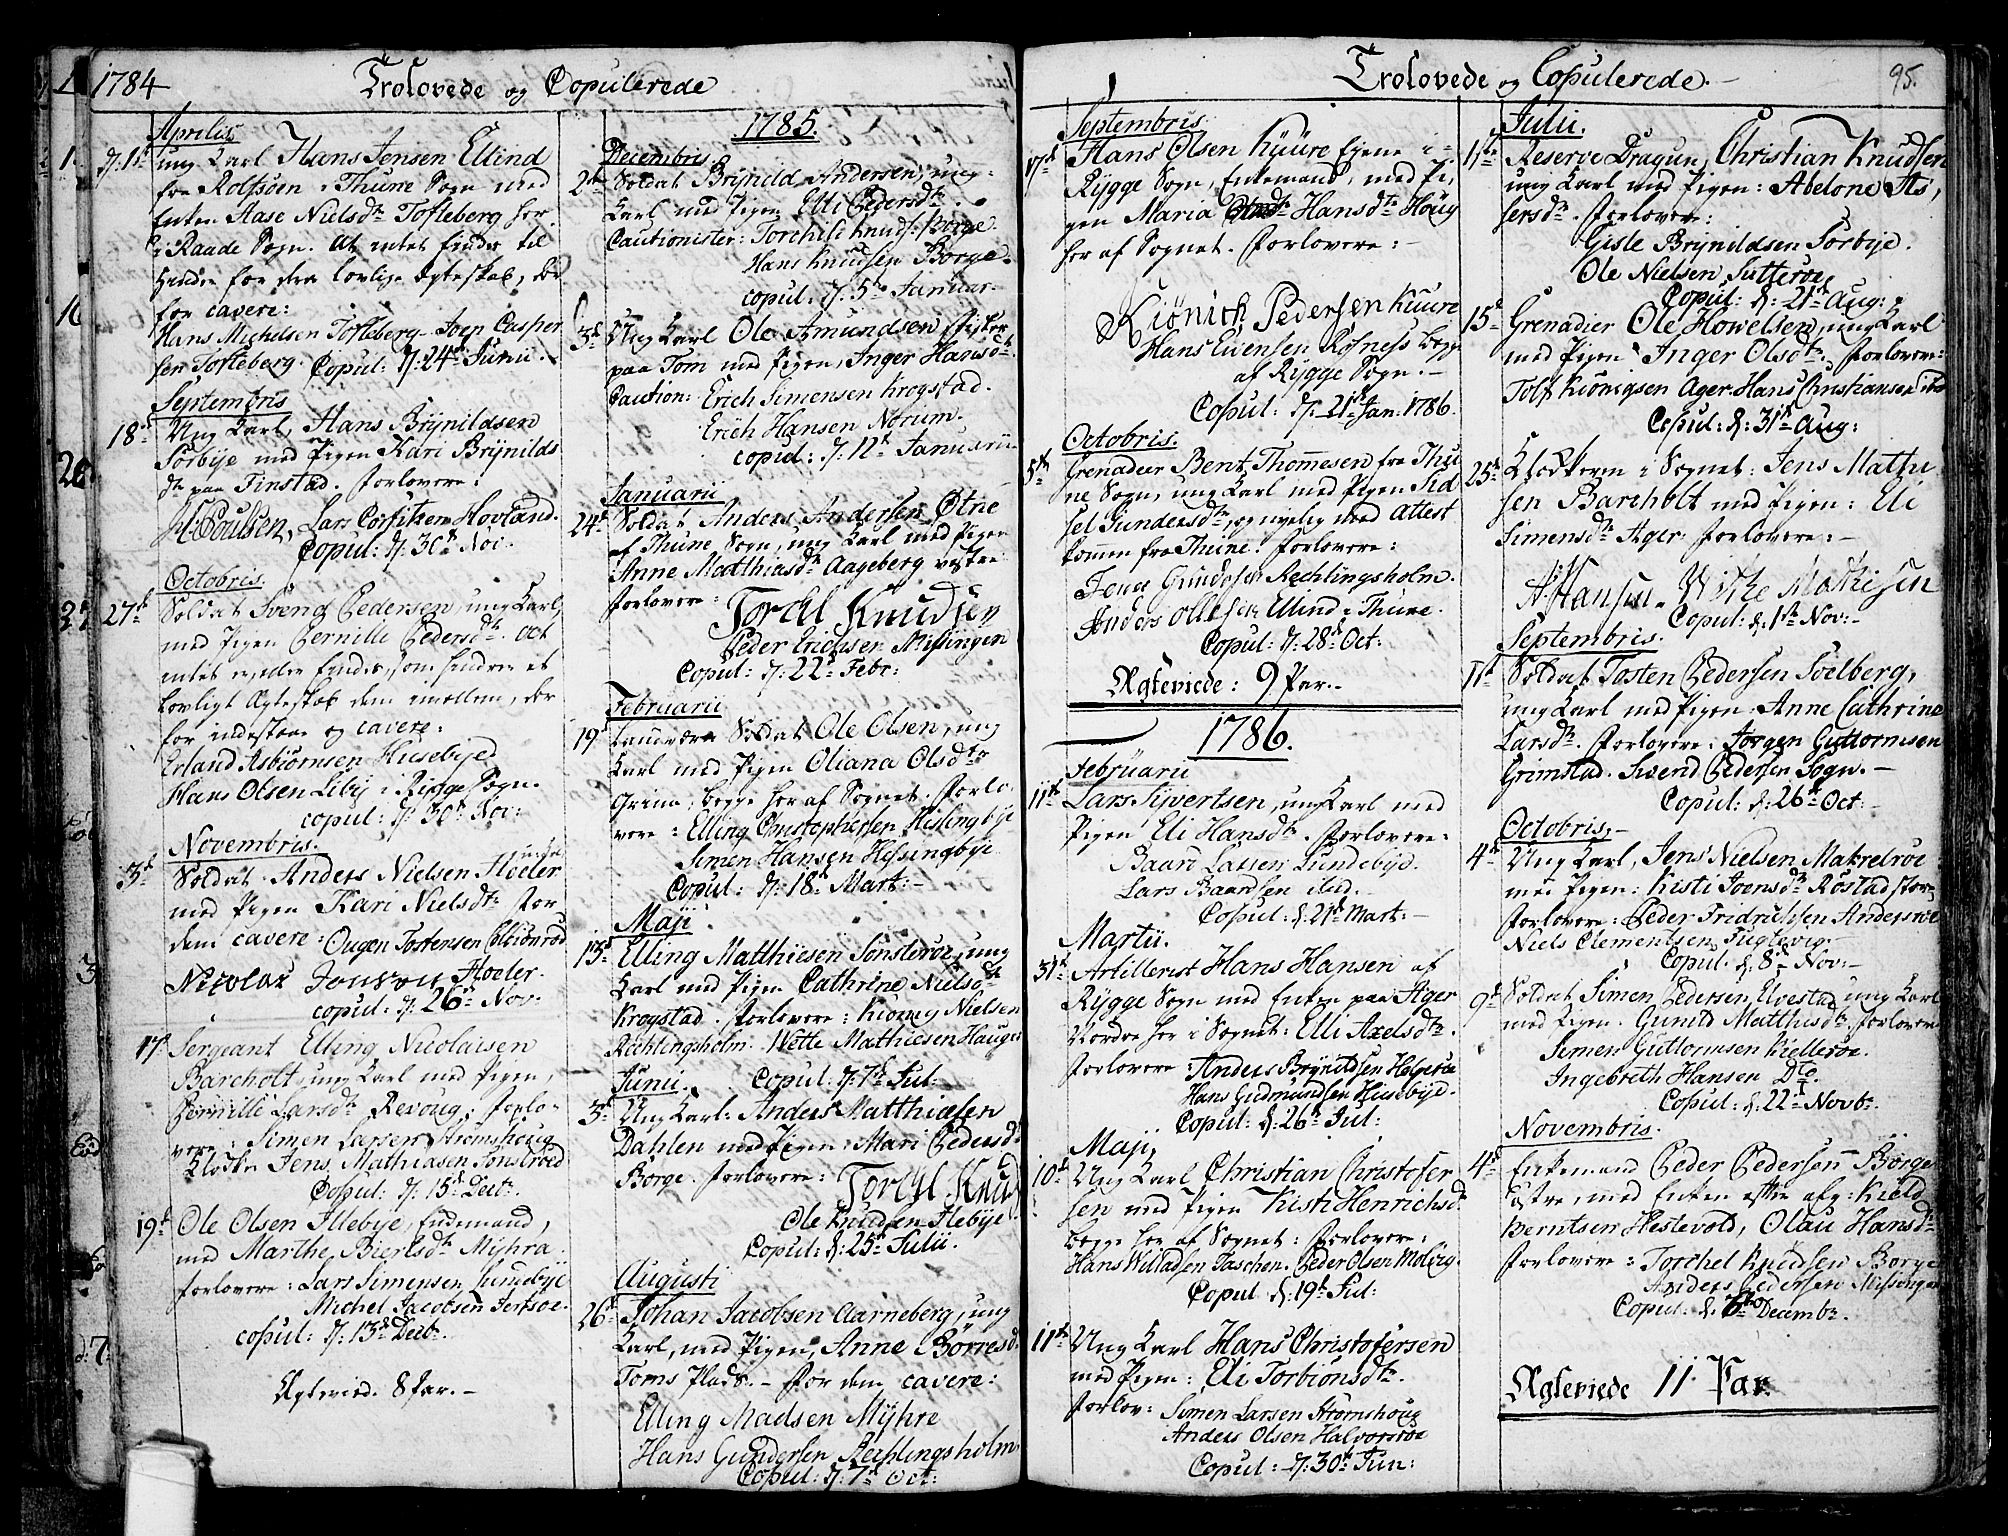 1784
Trolovede og Copulerede
Aprilis
d: 1t ung Karl Hans Jensen Ellind
fra Rolfsøen i Thune Sogn med
Enken Aase Nielsdtr Tofleberg her
i Raade Sogn. At intet findes til
Hinder for dem lovlige Ægteskab, der
for cavere:
Hans Michelsen Tofleberg Joen Casper
sen Tofleberg. Copul: d: 24de Junii
Septembris
18de Ung Karl, Hans Brynildsen
Sorbye med Pigen Kari Brynilds
dtr paa Tinstad. Forlovere:
Poulsen, Lars Hovland.
Copul: d: 30te Nov.
Octobris
27de Soldat Svend Pedersen ung Karl
med Pigen Pernille Pedersdtr. at
intet findes, som hindrer et
Lovligt Ægteskab dem imellem, der
for indestaae og cavere:
Erland Asbiørnsen Husebye
Hans Olsen Liby i Rygge Sogn.
copul: d: 30te Nov:
Novembris.
3de Soldat Anders Nielsen Hoeler
med Pigen Kari Nielsdtr for
dem cavere: Ougen Tostensen
Nicolai Hoeler.
copul: d: 26de Nov:
17de Sergeant Elling Nicolaisen
Barcholt, ung Karl med Pigen,
Pernille Larsdtr Revoug. Forlo-
vere: Simen Larsen Strømshoug
Klokker Jens Mathiasen Sonstroed
Copul: d: 15de Decbr.
19de Ole Olsen Illebye, Enkemand,
med Marthe Dtr Myhra.
Forlovere: Lars Simensen Lundebye
Michel Jacobsen
copul: d: 13de Decbr.
Ægteviede 8 Par.-
1785.
Decembris
Soldat Brynild Andersen, ung
Karl med Pigen Elli Pedersdtr.
Cautionister: Torchild Knuds: Borge.
Hans Knudsen Borge.
copul: d: 5te Januar:
3de Ung Karl Ole Amundsen
paa Tom med Pigen, Inger Hansdtr.
Caution: Erich Simensen Krogstad.
Erich Hansen Norum.
copul: d: 12te Januarii
Januarii
24de Soldat Anders Andersen Øtne
af Thune Sogn, ung Karl med Pigen
Anne Matthiasdtr Aageberg
Forlovere: Torchel Knudsen
Peder Erichsen Missingen
Copul: d: 22de Febr:
Februarii
19de Soldat Ole Olsen, ung
Karl med Pigen Oliana Olsdtr
Grima, begge her af Sognet. Forlo-
vere: Elling Christophersen Hislingbye
Simen Hansen Hissingbye
Copul: d: 18de Mart:-
Maji
15de Elling Matthiesen Sonsteroe, ung
Karl med Pigen Cathrine Nielsdtr
Krogstad. Forlovere: Kiønig Nielsen
Rechlingsholm. Wette Mathiesen Hauger
Copul: d: 7de Jul:
Junii.
3de Ung Karl: Anders Matthiesen
Dahlen med Pigen: Mari Pedersdtr
Borge. Forlovere: Torchel Knud
Ole Knudsen Ilebye.
Copul: d: 25de Julii.
Augusti
26de Johan Jacobsen Aarneberg, ung
Karl, med Pigen, Anne Børresdtr
Toms Plads.- For dem cavere:
Elling Madsen Myhre
Hans Gundersen Rechlingsholm
Copul: d: 7de Oct:
Trolovede og Copulerede.-
95.
Septembris
17de Hans Olsen Kuure i
Rygge Sogn, Enkemand, med Pi-
gen Maria Hansdtr Houg
her af Sognet. Forlovere:-
Kiønich Pedersen Kuure
Hans Evensen Rosness begge
af Rygge Sogn.-
Copul: d: 21de Jan. 1786.
Octobris.
5te Grenadeer Bent Thomesen fra Thu
ne Sogn, ung Karl med Pigen Sid
sel Gundersdtr, med Attest
kommen fra Thune. Forlovere:
Rechlingsholm.
Anders Ellind i Thune.
Copul: d: 28de Oct:
Ægteviede: 9 Par.-
1786.
Februarii
11te Lars Syvertsen, ung Karl med
Pigen Eli Hansdtr. Forlovere:
Baard Larsen Lundebye.
Lars Baardsen ibid.
Copul: d: 21de Mart:-
Martii.
31te Artillerist Hans Hansen af
Rygge Sogn med Enken paa Ager
Nordre her i Sognet: Elli Axelsdtr.
Forlovere: Anders Brynildsen Helgeroe
Hans Gudmundsen Husebye.
Copul: d: 26de Jul:
Maji,
10de Ung Karl Christian Christofer
sen med Pigen Kisti Henrichsd.
begge her af Sognet: Forlovere:
Hans Willadsen Taschen. Peder Olsen Moberg.
Copul d: 19de Jul:
11te Ung Karl Hans Christofersen
med Pigen: Eli Torbiønsdtr.
Forlov: Simen Larsen Strømshoug
Anders Olsen Halvorsrøe
Copul:- d: 30te Jun:
Julii.
11te Reserve Dragun, Christian Knudsen
ung Karl med Pigen: Abelone As-
sersdtr. Forlovere:
Gisle Brynildsen Sorbye.
Ole Nielsen Sutterøe
Copul: d: 21de Aug:
15de Grenadier Ole Howelsen, ung Karl
med Pigen Inger Olsdtr. Forlovere:
Tolf Kiønigsen Ager. Hans Christiansen ibid
Copul: d: 31te Aug:
25de Klokkeren i Sognet: Jens Mathi
sen Barcholt med Pigen: Eli
Simensdtr Ager. Forlovere:-
Hansen. Mathisen
Copul: d: 1ste Nov:-
Septembris.
11te Soldat Tosten Pedersen Solberg,
ung Karl med Pigen Anne Cathrine
Larsdtr. Forlovere: Jørgen Guttormsen
Grimstad. Svend Pedersen Sogn.-
Copul: d: 26de Oct:-
Octobris,-
4de Ung Karl, Jens Nielsen Makrelrøe
med Pigen: Kisti Joensdtr Rostad store
Forlovere: Peder Fridrichsen Andersrøe
Niels Clementsen Fuglevig.-
Copul: d: 8de Nov:-
9de Soldat Simen Pedersen Elvestad ung Karl
med Pigen. Gunild Matthisdtr. Forlovere
Simen Guttormsen Kiellerøe.
Ingebreth Hansen Dto
Copul: d: 22de Novb:.
Novembris.
4de Enkemand Peder Pedersen Borge
Østre, med Enken efter afg: Kield
Berntsen Hestevold, Olau Hansdtr
Forlovere: Torchel Knudsen Borge
Anders Pedersen Missingen
Copul: d: 6te Decembr.
Ægteviede 11 Par